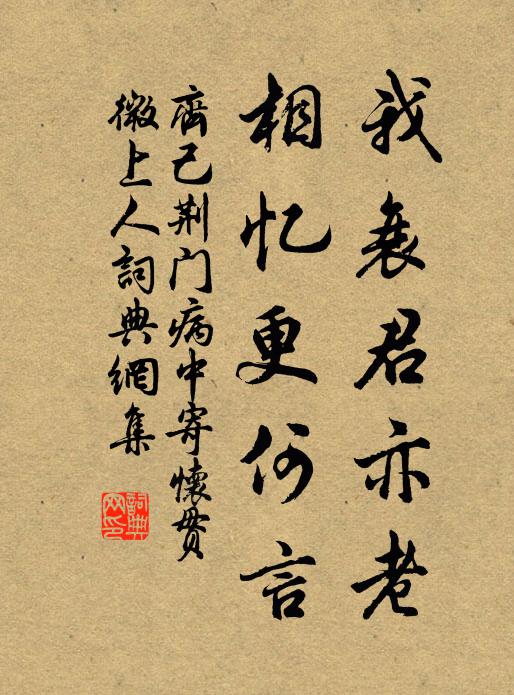 我衰君亦老
相忆更何言
齊己荆门病中寄懷貫
微上人詞典網集
詞典
网印